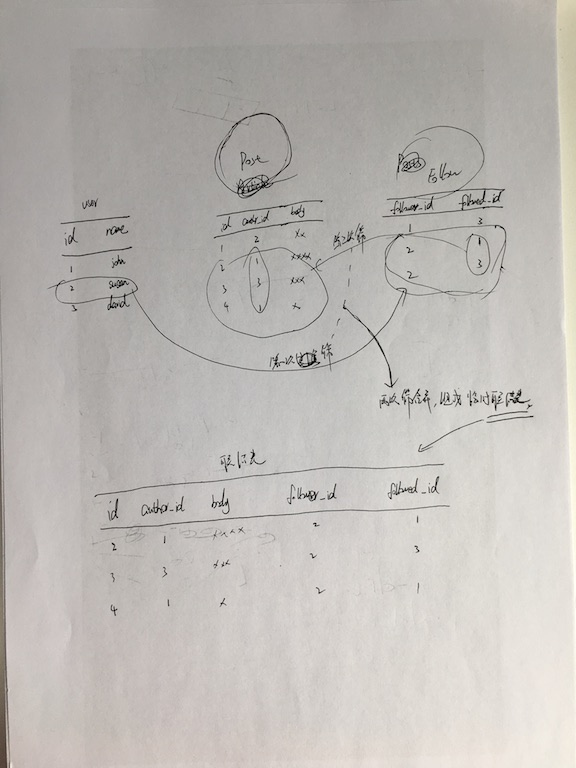 user
id name
1 john
2 susan
3 david
Post
id author_id body
1 2 xx
2 1 xxxx
3 3 xxx
4 1 x
Follow
follower_id followed_id
1 3
2 1
2 3
第二次筛
第一次 筛
两次筛合并,组成临时联结表。
联结表
id author_id body follower_id followed_id
2 1 xxxx 2 1
3 3 xxx 2 3
4 1 x 2 1